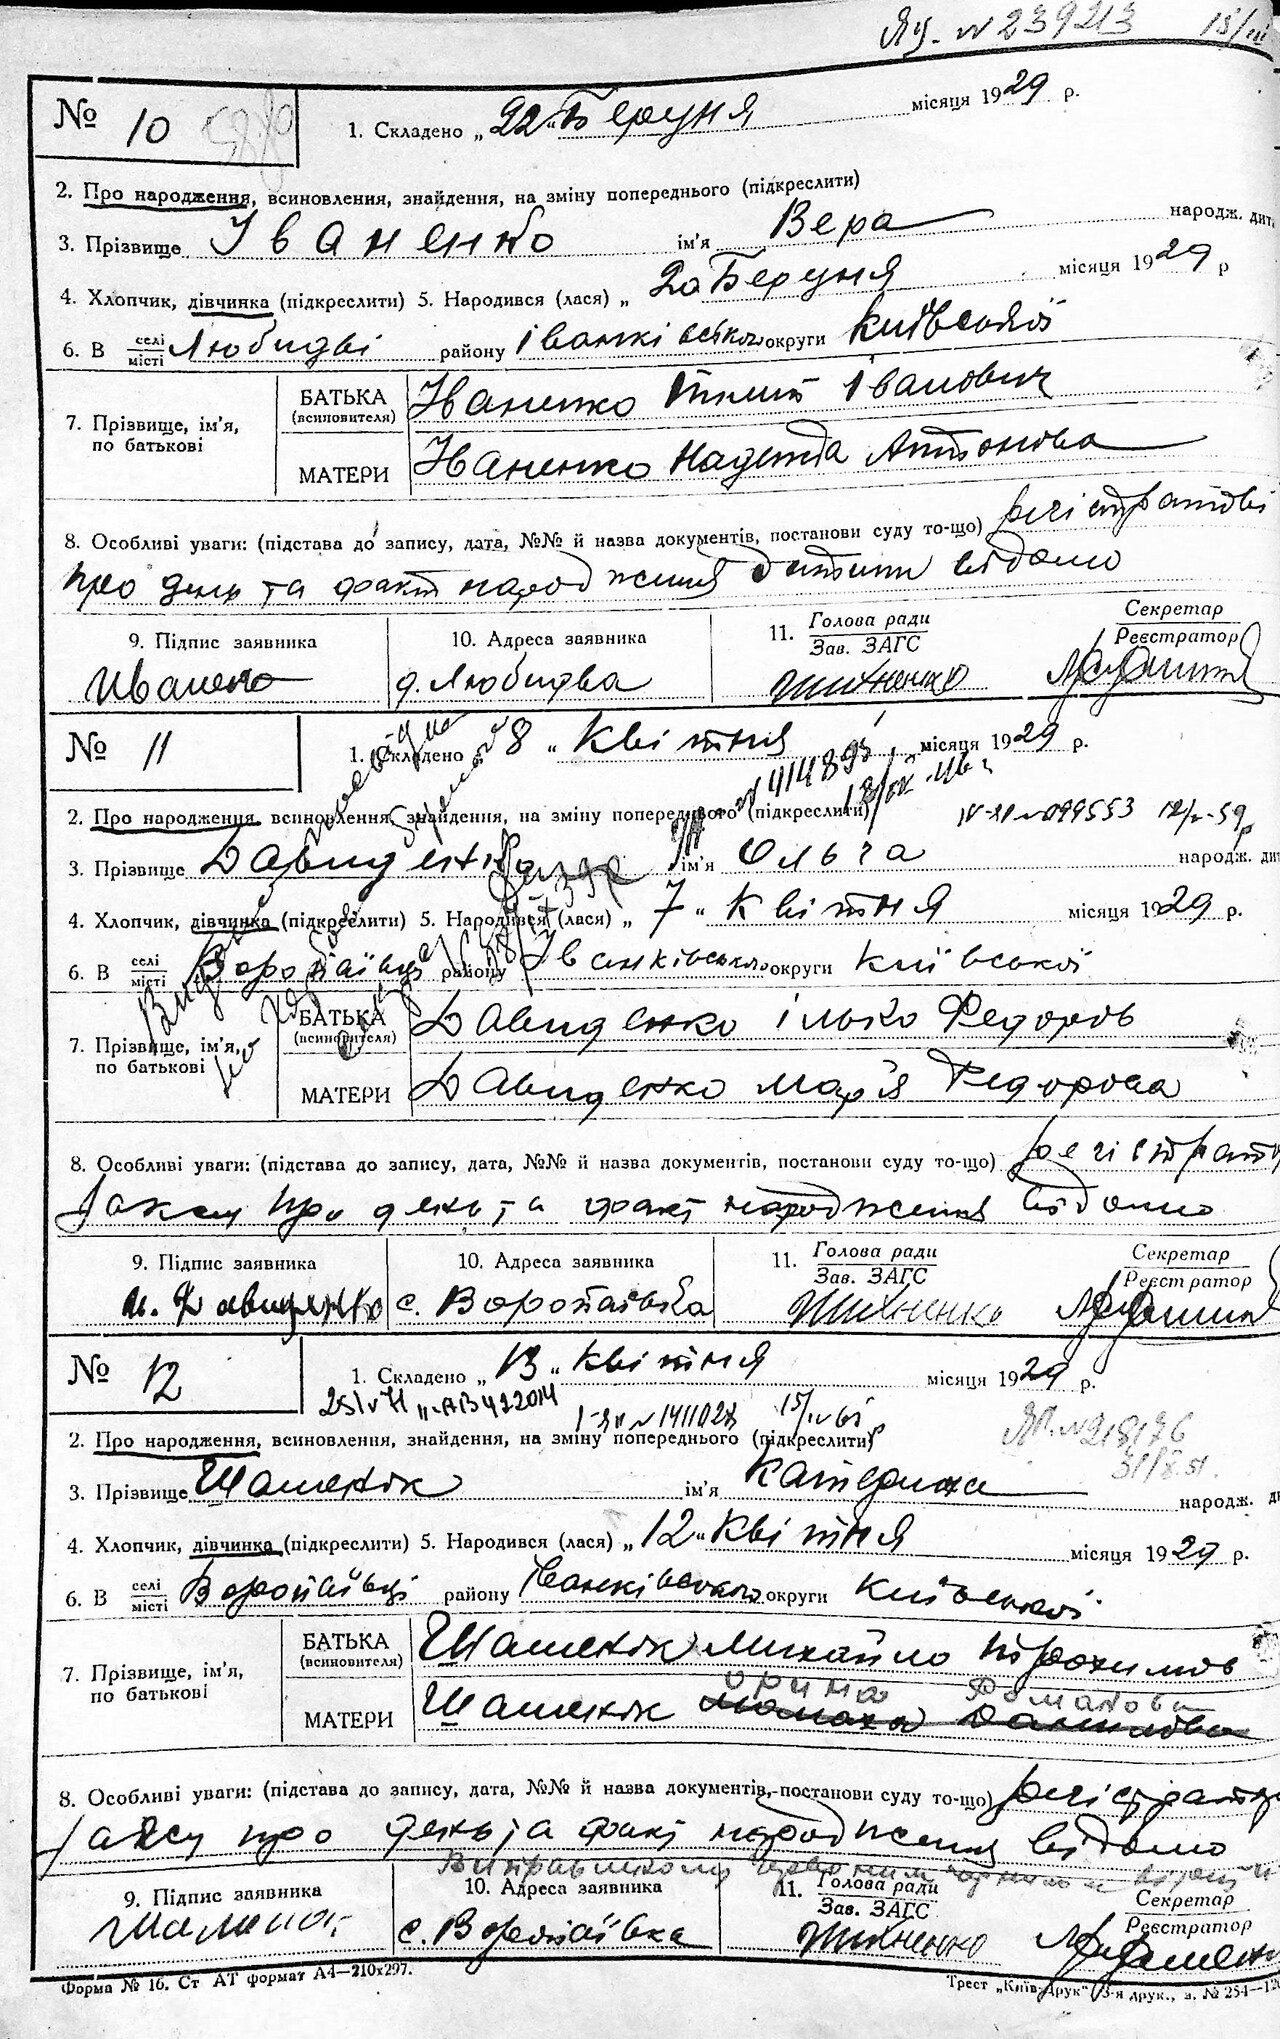 № 239213 15/III
№ 10
1. Складено „22“ Беруня місяця 1929 р.
2. Про народження, всиновлення, знайдення, на зміну попереднього (підкреслити)
3. Прізвище Іваненко ім'я Вера народж. дит
4. Хлопчик, дівчинка (підкреслити) 5. Народився (лася) „ 20 Беруня місяця 1929 р
6. В селі/місті Любидві району Іванківсікого округи Київської
7. Прізвище, ім'я, по батькові
БАТЬКА (всиновителя) Іваненко Іванович
МАТЕРИ Іваненко Надежда Антонова
8. Особливі уваги: (підстава до запису, дата, №№ й назва документів, постанови суду то-що) регістратові
про день та факт народження дитини відомо
9. Підпис заявника 10. Адреса заявника 11. Голова ради/Зав. ЗАГС Секретар/Реєстратор
Иванено д. Любидва
№ 11
1. Складено „ 8 „ Квітня місяця 1929 р.
№ 414895
IV-XI № 099553
2. Про народження всиновлення, знайдення, на зміну попереднього (підкреслити)
3. Прізвище Давиденко ім'я Ольга народж. дит
4. Хлопчик, дівчинка (підкреслити) 5. Народився (лася) „ 7 „ Квітня місяця 1929 р.
6. В селі/місті Воропаївці району Іванківського округи Київської
7. Прізвище, ім'я, по батькові
БАТЬКА (всиновителя) Давиденко Ілько Федоров
МАТЕРИ Давиденко Мар'я Федорова
8. Особливі уваги: (підстава до запису, дата, №№ й назва документів, постанови суду то-що)
про день та факт народження відомо
9. Підпис заявника 10. Адреса заявника 11. Голова ради/Зав. ЗАГС Секретар/Реєстратор
и. Ф Давиденко с. Воропаівка
№ 12
1. Складено „ 13 „ Квітня місяця 1929 р.
№ 1411027
2. Про народження, всиновлення, знайдення, на зміну попереднього (підкреслити)
№ 218176
31/8.51.
3. Прізвище Шаменок ім'я Катерина народж. ди
4. Хлопчик, дівчинка (підкреслити) 5. Народився (лася) „ 12 „ Квітня місяця 1929 р.
6. В селі/місті Воропаївці району Іванківського округи Київської
7. Прізвище, ім'я, по батькові
БАТЬКА (всиновителя) Шаменок Михайло
Орина Романова
МАТЕРИ Шаменок Данилова
8. Особливі уваги: (підстава до запису, дата, №№ й назва документів, постанови суду то-що)
про день та факт народження відомо
9. Підпис заявника 10. Адреса заявника 11. Голова ради/Зав. ЗАГС Секретар/Реєстратор
Шаменок с. Воропаівка
Форма № 16. Ст АТ формат А4—210х297.
Трест „Київ-Друк“ 3-я друк., з. № 254—120